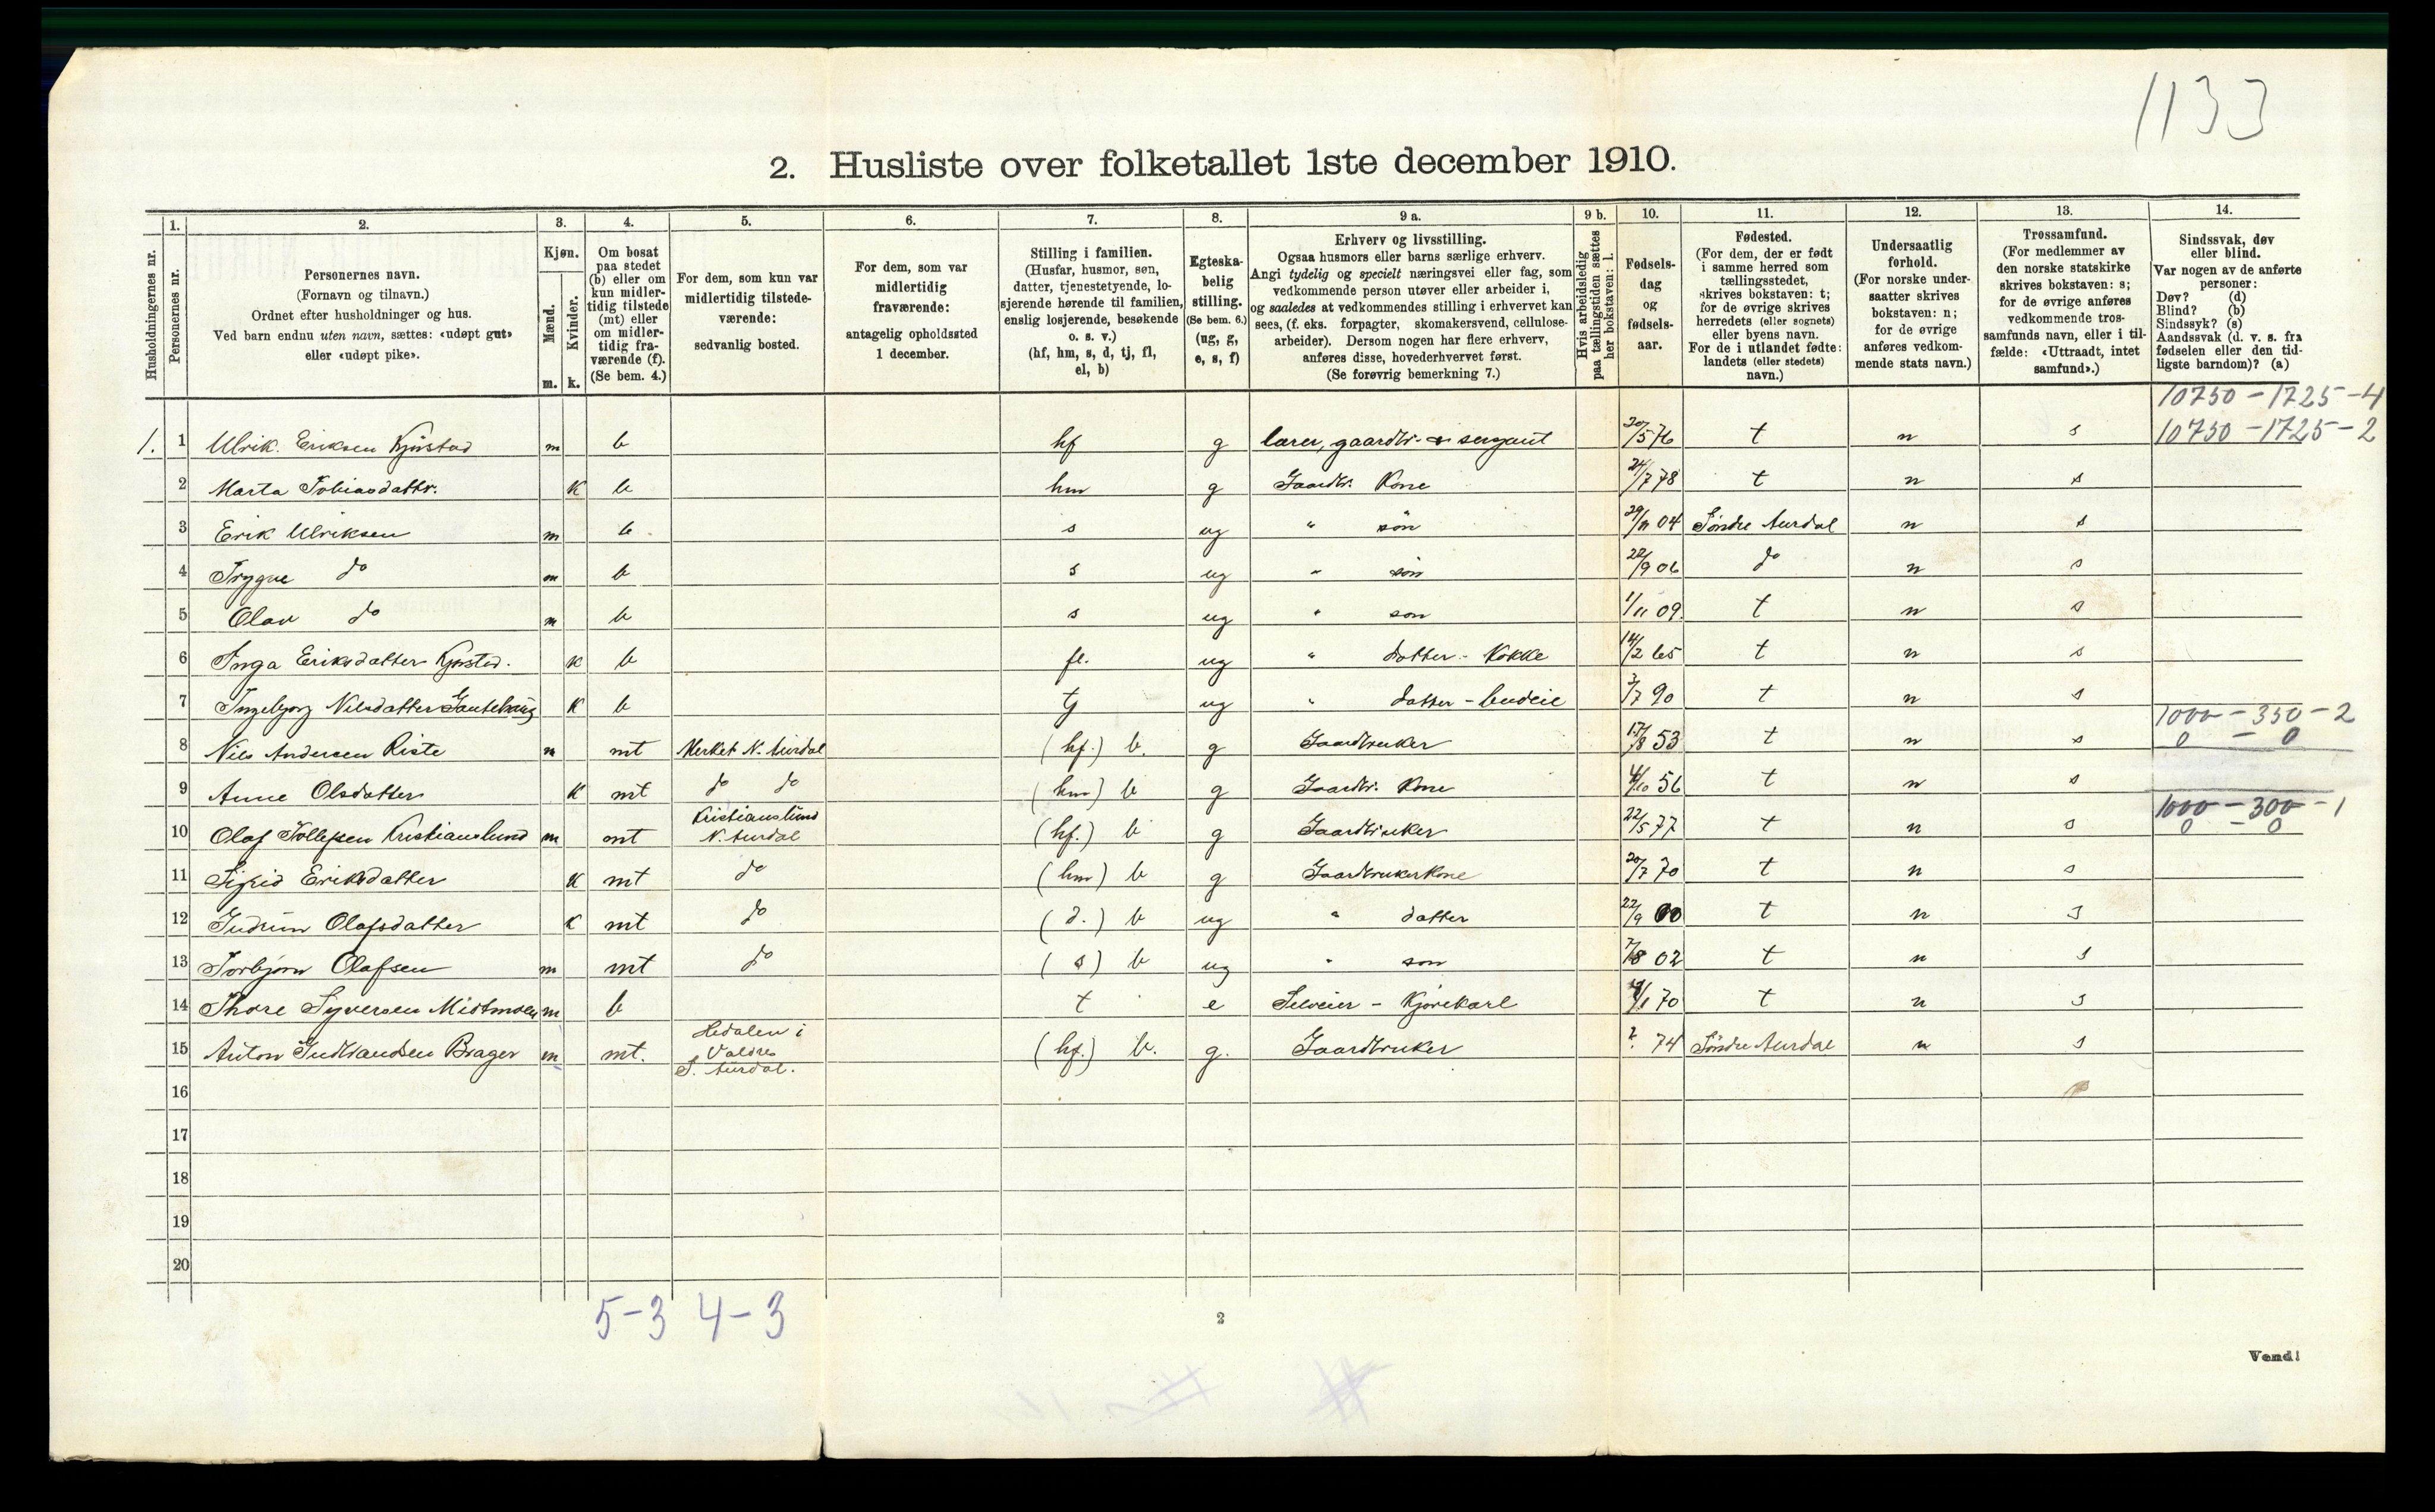 1133
2. Husliste over folketallet 1ste december 1910.
Husholdningernes nr.
1. Personernes nr.
2. Personernes navn.
(Fornavn og tilnavn.)
Ordnet efter husholdninger og hus.
Ved barn endnu uten navn, sættes: «udøpt gut»
eller «udøpt pike».
3. Kjøn.
Mænd. m.
Kvinder. k.
4. Om bosat
paa stedet
(b) eller om
kun midler-
tidig tilstede
(mt) eller
om midler-
tidig fra-
værende (f).
(Se bem. 4.)
5. For dem, som kun var
midlertidig tilstede-
værende:
sedvanlig bosted.
6. For dem, som var
midlertidig
fraværende:
antagelig opholdssted
1 december.
7. Stilling i familien.
(Husfar, husmor, søn,
datter, tjenestetyende, lo-
sjerende hørende til familien,
enslig losjerende, besøkende
o. s. v.)
(hf, hm, s, d, tj, fl,
el, b)
8. Egteska-
belig
stilling.
(Se bem. 6.)
(ug, g,
e, s, f)
9 a. Erhverv og livsstilling.
Ogsaa husmors eller barns særlige erhverv.
Angi tydelig og specielt næringsvei eller fag, som
vedkommende person utøver eller arbeider i,
og saaledes at vedkommendes stilling i erhvervet kan
sees, (f. eks. forpagter, skomakersvend, cellulose-
arbeider). Dersom nogen har flere erhverv,
anføres disse, hovederhvervet først.
(Se forøvrig bemerkning 7.)
9 b. Hvis arbeidsledig
paa tællingstiden sættes
her bokstaven: l.
10. Fødsels-
dag
og
fødsels-
aar.
11. Fødested.
(For dem, der er født
i samme herred som
tællingsstedet,
skrives bokstaven: t;
for de øvrige skrives
herredets (eller sognets)
eller byens navn.
For de i utlandet fødte:
landets (eller stedets)
navn.)
12. Undersaatlig
forhold.
(For norske under-
saatter skrives
bokstaven: n;
for de øvrige
anføres vedkom-
mende stats navn.)
13. Trossamfund.
(For medlemmer av
den norske statskirke
skrives bokstaven: s;
for de øvrige anføres
vedkommende tros-
samfunds navn, eller i til-
fælde: «Uttraadt, intet
samfund».)
14. Sindssvak, døv
eller blind.
Var nogen av de anførte
personer:
Døv? (d)
Blind? (b)
Sindssyk? (s)
Aandssvak (d. v. s. fra
fødselen eller den tid-
ligste barndom)? (a)
10750 - 1725 - 4
1. 1 Ulrik Eriksen Kjøstad m b hf g lærer, gaardbr. sergeant 20/5 76 t n s 10750 - 1725 - 2
2 Marta Tobiasdattr. k b hm g Gaardbr. Kone 24/7 78 t n s
3 Erik Ulriksen m b s ug " søn 29/11 04 Søndre Aurdal n s
4 Trygve do m b s ug " søn 22/9 06 do n s
5 Olav do m b s ug " søn 1/11 09. t n s
6 Inga Eriksdatter Kjøstad. k b fl. ug " datter - Kokke 14/2 65 t n s
7 Ingebjørg Nilsdatter k b tj ug " datter - budeie 3/7 90 t n s
1000 - 350 - 2
8 Nils Andersen Riste m mt Merket N. Aurdal (hf.) b. g Gaardbruker 15/8 53 t n s 0 - 0
9 Anne Olsdatter k mt do do (hm) b g Gaardbr. Kone 4/10 56 t n s
1000 - 300 - 1
10 Olaf Tollefsen Kristianslund m mt Kristianslund
N. Aurdal (hf.) b g Gaardbruker 22/5 77 t n s 0 - 0
11 Sigrid Eriksdatter k mt do (hm) b g Gaardbrukerkone 20/7 70 t n s
12 Gudrun Olafsdatter k mt do (d.) b ug " datter 22/9 00 t n s
13 Torbjørn Olafsen m mt do (s) b ug " søn 7/8 02 t n s
14 Thore Syversen Midtmoen m b t e Selveier - Kjørekarl 70 t n s
15 Anton Gudbrandsen Brager m mt. Hedalen i
Valdres
S. Aurdal. (hf.) b. g. Gaardbruker ? 74 Søndre Aurdal n s
16
17
18
19
20
5-3 4-3
2
Vend!